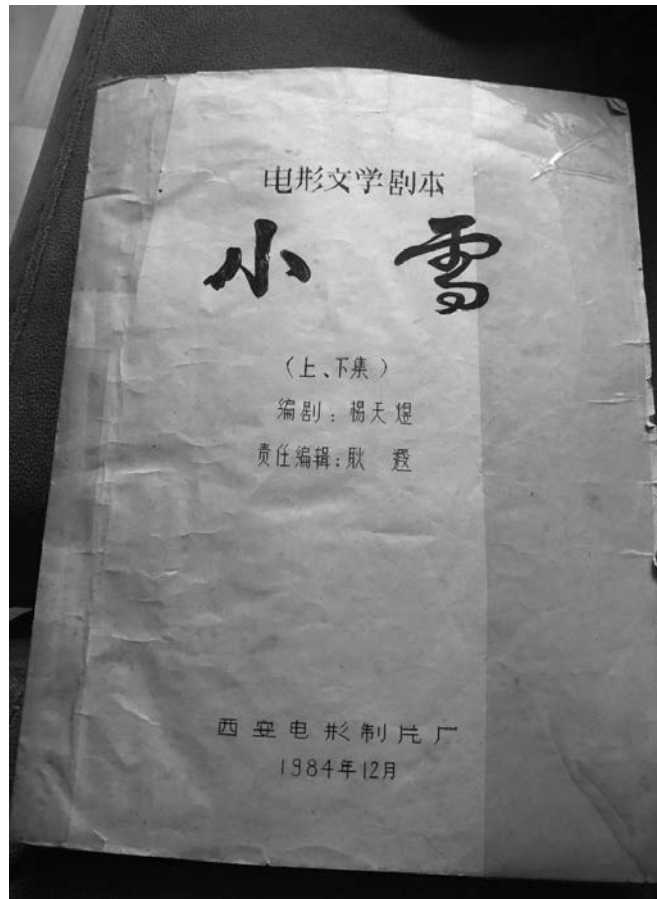 电形文学剧本
小雪
（上、下集）
编剧：楊天煜
责任编辑：耿 遐
西安电形制片厂
1984年12月